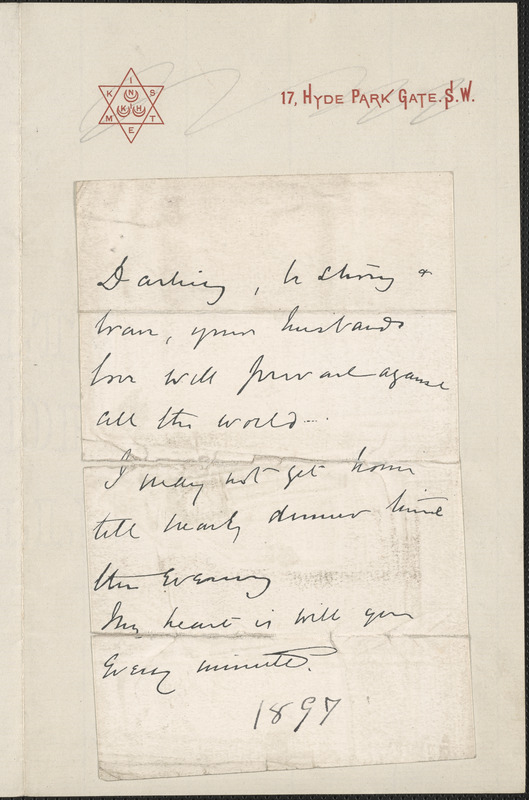 I
K N S
K H
M T
E
17, HYDE PARK GATE. S.W.
Darling, be strong &
brave, your husbands
love will prevail against
all the world...
I may not get home
till nearly dinner time
this Evening
My heart is with you
Every minute.
1897